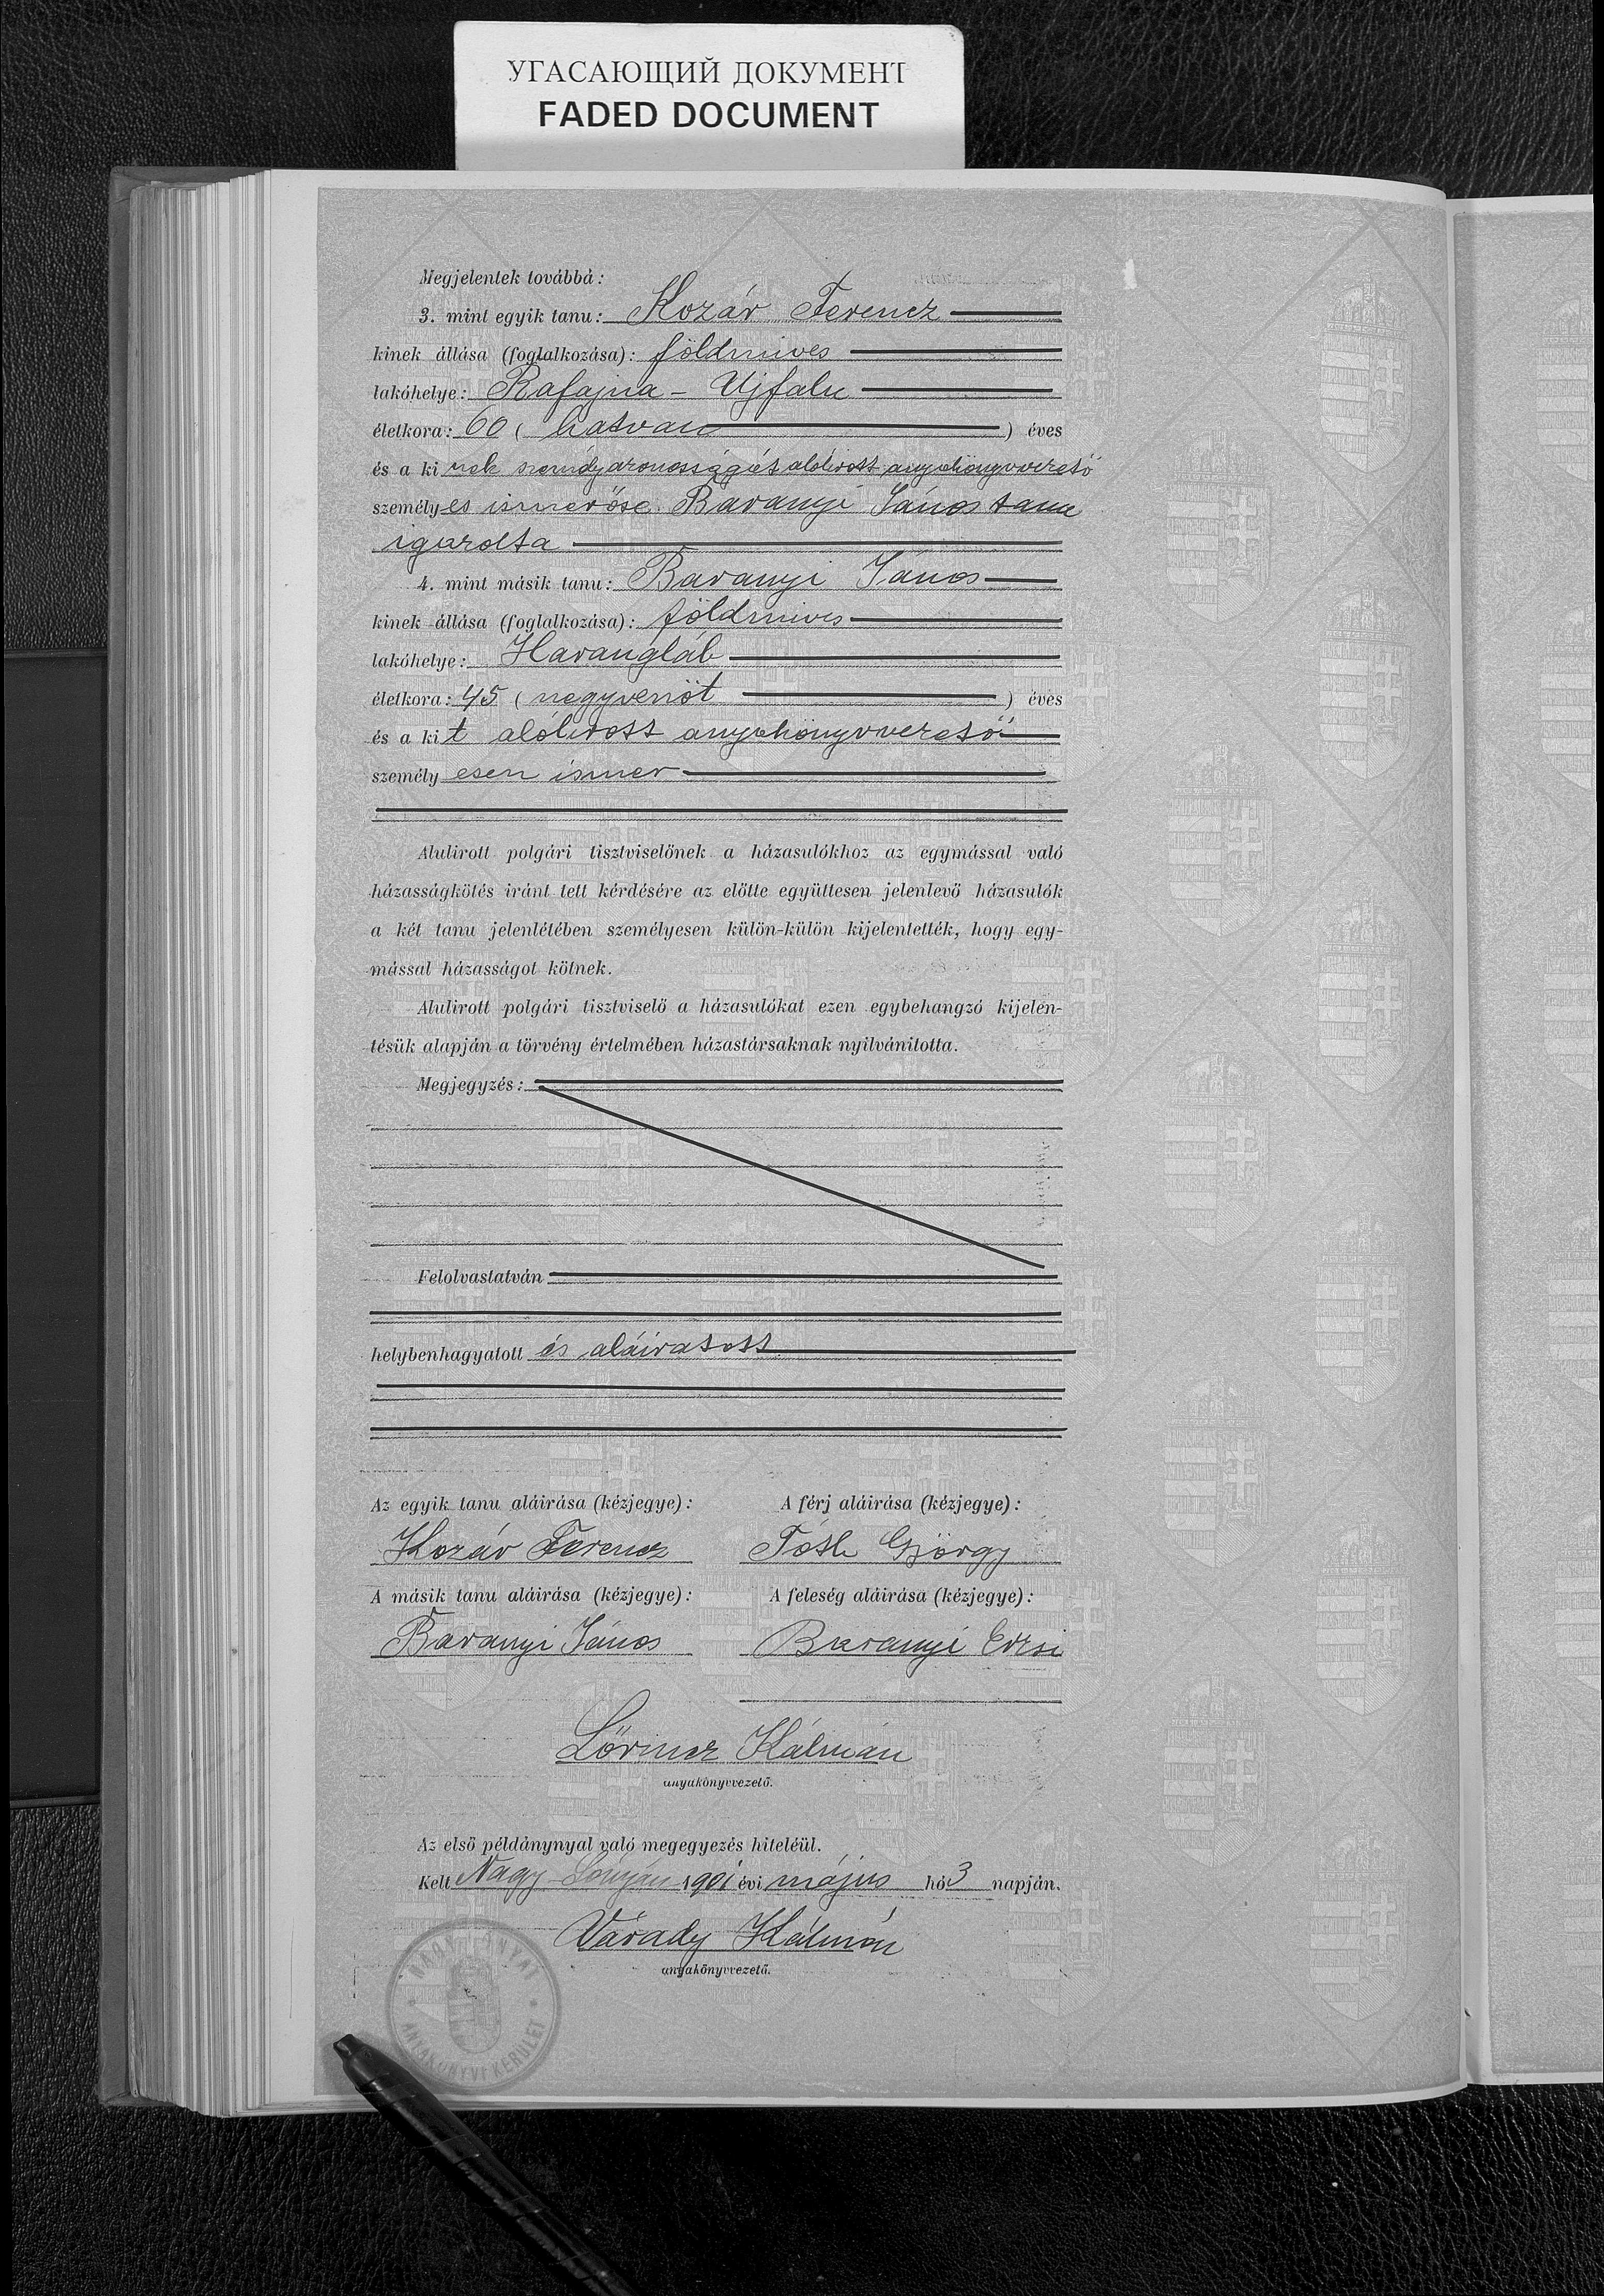 УГАСАЮЩИЙ ДОКУМЕНТ
FADED DOCUMENT
Megjelentek továbbá:
3. mint egyik tanu: Kozár Ferencz
kinek állása (foglalkozása): földmives
lakóhelye: Rafajna-Ujfalu
életkora: 60 (hatvan) éves
és a kinek személyazonosságát alólirott anyakönyvvezető
személyes ismerőse Baranyi János tanu
igazolta
4. mint másik tanu: Baranyi János
kinek állása (foglalkozása): földmives
lakóhelye: Harangláb
életkora: 45 (negyvenöt) éves
és a kit alólirott anyakönyvvezető
személyesen ismer
Alulirott polgári tisztviselőnek a házasulókhoz az egymással való
házasságkötés iránt tett kérdésére az előtte együttesen jelenlevő házasulók
a két tanu jelenlétében személyesen külön-külön kijelentették, hogy egy-
mással házasságot kötnek.
Alulirott polgári tisztviselő a házasulókat ezen egybehangzó kijelen-
tésük alapján a törvény értelmében házastársaknak nyilvánitotta.
Megjegyzés:
Felolvastatván
helybenhagyatott és aláiratott
Az egyik tanu aláirása (kézjegye): A férj aláirása (kézjegye):
Kozár Ferencz Tóth György
A másik tanu aláirása (kézjegye): A feleség aláirása (kézjegye):
Baranyi János Baranyi Erzsi
Lörincz Kálmán
anyakönyvvezető.
Az első példánynyal való megegyezés hiteléül.
Kelt Nagy-Lónyán 1901 évi május hó 3 napján.
Várady Kálmán
anyakönyvvezető.
NAGYLÓNYAI
ANYAKÖNYVI KERÜLET